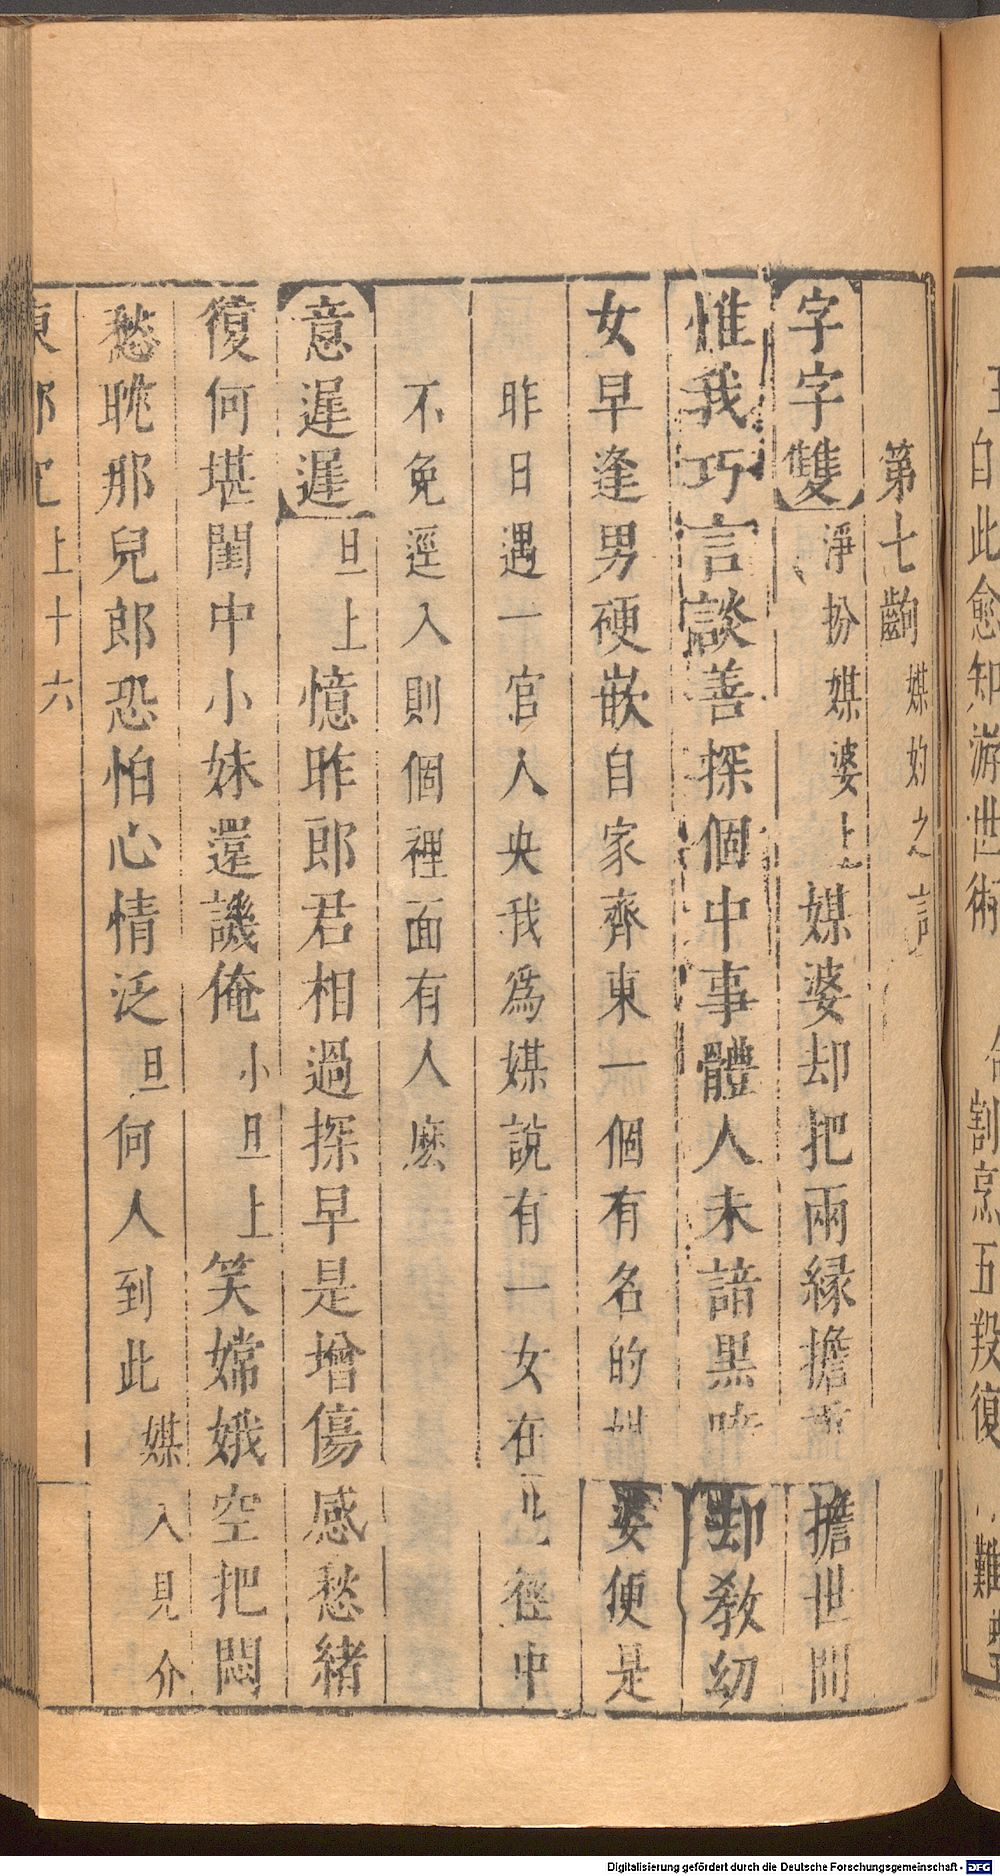 第七齣媒妁之言
字字雙淨扮媒婆上媒婆却把兩縁擔擔世間
惟我巧言談善探個中事體人未諳黑却教幼
女早逢男硬嵌自家齊東一個有名的婆便是
昨日遇一官人央我為媒說有一女在徑中
不免逕入則個裡面有人麽
意遲遲旦上憶昨郎君相過探早是增傷感愁緒
復何堪閨中小妹還譏俺小旦上笑嫦娥空把悶
愁眺那兒郎恐怕心情泛旦何人到此媒入見介
東郭記上十六
自此愈知游世術
割烹五羖復難
Digitalisierung gefördert durch die Deutsche Forschungsgemeinschaft - DFG